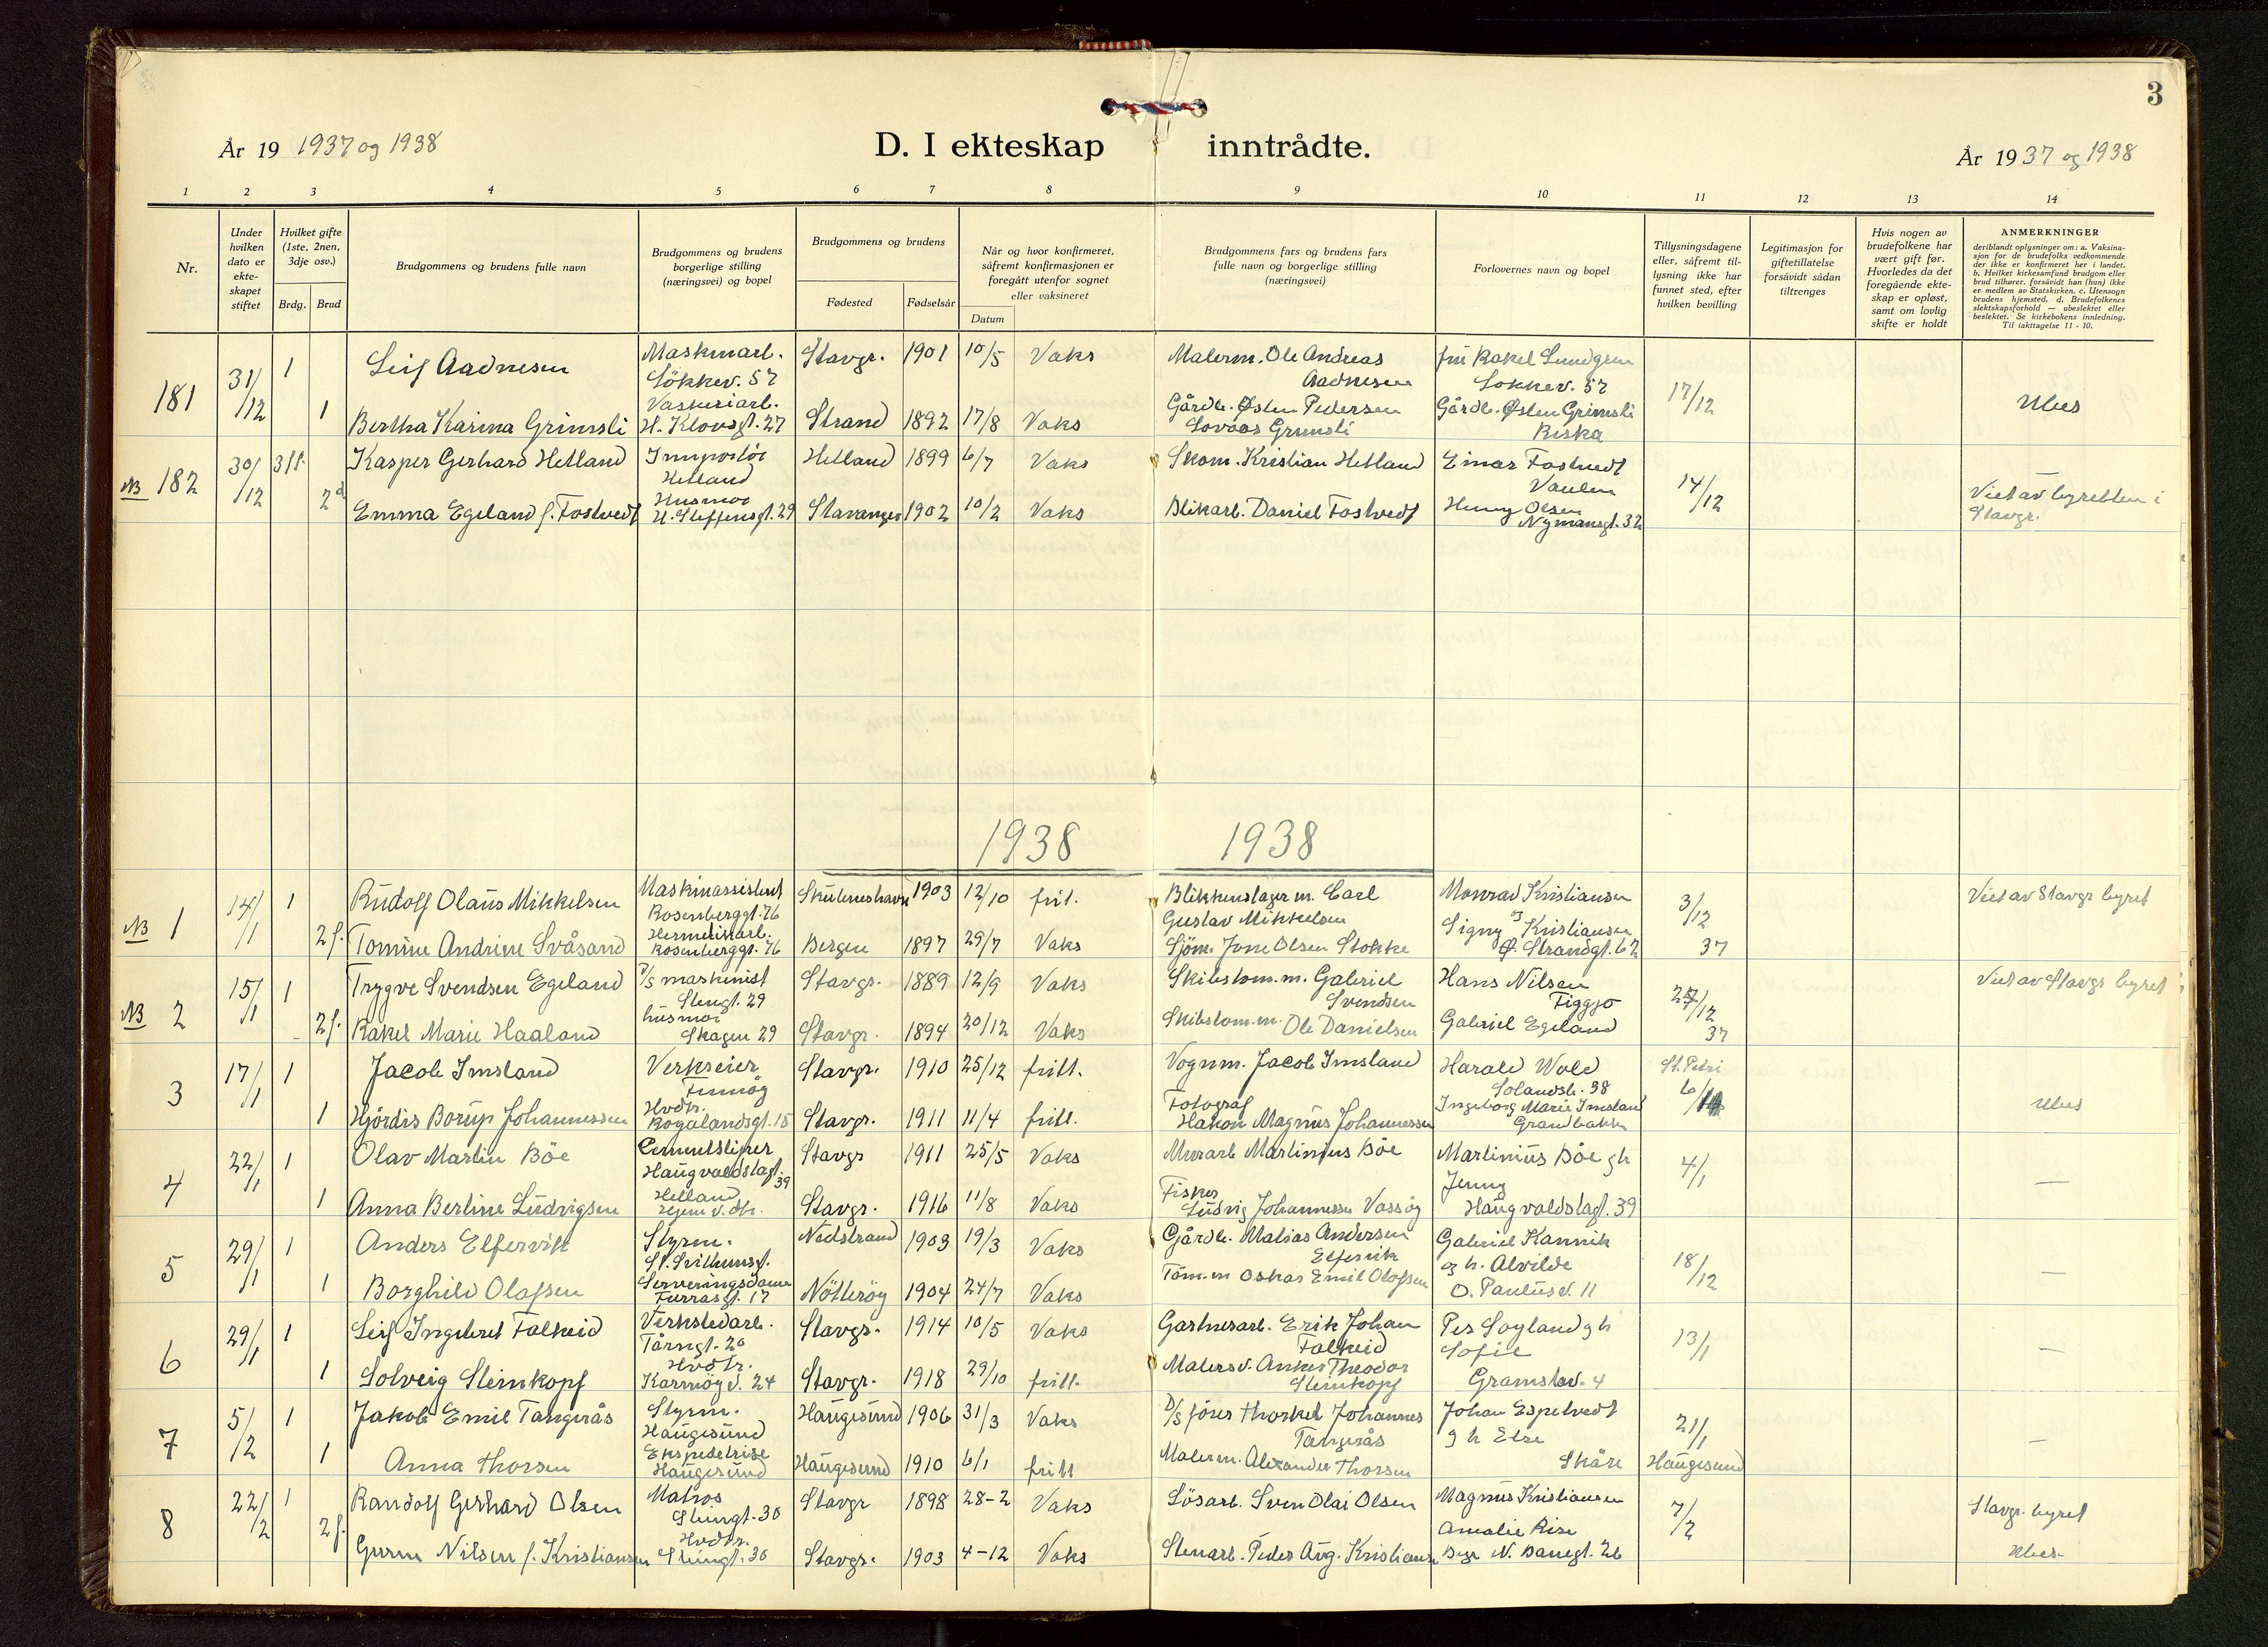 3
År 19 1937 og 1938
D. I ekteskap inntrådte.
År 19 37 og 1938
1 2 3 4 5 6 7 8 9 10 11 12 13 14
Nr.
Under hvilken dato er ekte-skapet stiftet
Hvilket gifte (1ste, 2nen, 3dje osv.)
Brdg. Brud
Brudgommens og brudens fulle navn
Brudgommens og brudens borgerlige stilling (næringsvei) og bopel
Brudgommens og brudens
Fødested Fødselsår
Når og hvor konfirmeret, såfremt konfirmasjonen er foregått utenfor sognet eller vaksineret
Datum
Brudgommens fars og brudens fars fulle navn og borgerlige stilling (næringsvei)
Forlovernes navn og bopel
Tillysningsdagene eller, såfremt til-lysning ikke har funnet sted, efter hvilken bevilling
Legitimasjon for giftetillatelse forsåvidt sådan tiltrenges
Hvis nogen av brudefolkene har vært gift før. Hvorledes da det foregående ekte-skap er opløst, samt om lovlig skifte er holdt
ANMERKNINGER
deriblandt oplysninger om: a. Vaksina-sjon for de brudefolks vedkommende der ikke er konfirmeret her i landet. b. Hvilket kirkesamfund brudgom eller brud tilhører, forsåvidt han (hun) ikke er medlem av Statskirken. c. Utensogn brudens hjemsted. d. Brudefolkenes slektskapsforhold — ubeslektet eller beslektet. Se kirkebokens innledning. Til iakttagelse 11 - 10.
181 31/12 1 Leif Aadnesen Maskinarb. Lökkev. 57 Stavgr. 1901 10/5 Vaks Malerm. Ole Andreas Aadnesen frü Rakel Lundgren Lökkev. 57 17/12 Ubes
1 Bertha Karina Grimsli Vaskeriarb. H. Klovsgt. 27 Strand 1892 17/8 Vaks Gårdb. Østen Pedersen Lovaas Grimsli Gårdb. Østen Grimsli Riska
NB 182 30/12 3 Kasper Gerhard Hetland Hetland Hetland 1899 6/7 Vaks Skom. Kristian Hetland Einar Fostvedt Vaulen 14/12 Viet av byretten i Stavgr.
2 Emma Egeland f. Fostvedt Husmor St. Steffensgt. 29 Stavanger 1902 10/2 Vaks Blikarb. Daniel Fostvedt Henny Olsen Nymansgt. 32
1938 1938
NB 1 14/1 1 Rüdolf Olaüs Mikkelsen Maskinassistent Rosenberggt. 76 Sküdeneshavn 1903 12/10 frit. Blikkenslager m. Carl Gustav Mikkelsen Monrad Kristiansen 3/12 37 Viet av Stavgr byret
2 f. Tomine Andrine Svåsand Hermetikarb. Rosenberggt. 76 Bergen 1897 29/7 Vaks Sjöm. Jone Olsen Stokke Signy Kristiansen Ø. Strandgt. 62
NB 2 15/1 1 Trygve Svendsen Egeland D/S maskinist Stengt. 29 Stavgr. 1889 12/9 Vaks Skibstom.m. Gabriel Svendsen Hans Nilsen Figgjo 27/12 37 Viet av Stavgr byret
2 f. Rakel Marie Haaland husmor Skagen 29 Stavgr. 1894 20/12 Vaks Skibstom.m. Ole Danielsen Gabriel Egeland
3 17/1 1 Jacob Imsland Verkseier Finnög Stavgr. 1910 25/12 fritt. Vognm. Jacob Imsland Harald Wold Solandsb. 38 St. Petri 6/ Ubes
1 Hjördis Borüp Johannessen Hvdtr. Rogalandsgt. 15 Stavgr. 1911 11/4 fritt. Fotograf Hakon Magnüs Johannessen Ingeborg Marie Imsland
4 22/1 1 Olav Martin Böe Cementstöper Haügvaldstagt. 39 Stavgr 1911 25/5 Vaks Murarb Martinius Böe Martiniüs Böe gh 4/1 —
1 Anna Berline Lüdvigsen Hetland Hjem v. dtr. Stavgr. 1916 11/8 Vaks Fisker Lüdvig Johannesen Vassög Jenny Haügvaldstagt. 39
5 29/1 1 Anders Elfervik Styrm. St. Svithunsgt. Nedstrand 1903 19/3 Vaks Gårdb. Matias Andersen Elfervik Gabriel Kannik 18/12 —
1 Borghild Olafsen Serveringsdame Furrasgt. 17 Nötteröy 1904 24/7 Vaks Töm.m Oskar Emil Olafsen og h. Alvilde O. Paulüsv. 11
6 29/1 1 Leif Ingebret Falkeid Verkstedarb. Tårngt. 20 Stavgr. 1914 10/5 Vaks Gartnerarb. Erik Johan Falkeid Per Soyland gh 13/1 —
1 Solveig Steinkopf Hvdtr. Karmöyv. 24 Stavgr. 1918 29/10 fritt. Malersv. Anker Theodor Steinkopf Sofie Gramstav. 4
7 5/2 1 Jakob Emil Tangerås Styrm. Haügesünd Haügesünd 1906 31/3 Vaks D/S förer Thorkel Johannes Tangerås Johan Espetvedt 21/1 Haügesund —
1 Anna Thorsen Ekspeditrise Haügesünd Haügesünd 1910 6/1 fritt Malerm. Alexander Thorsen g h Else Skåre
8 22/2 1 Randolf Gerhard Olsen Matros Stengt. 30 Stavgr 1898 28-2 Vaks Lösarb. Sven Olai Olsen Magnüs Kristiansen 7/2 Stavgr. byret
2 f. Gurine Nilsen f. Kristiansen Hvdtr. Stengt. 30 Stavgr. 1903 4-12 Vaks Stenarb. Peder Aüg. Kristianse Amalie Rise N. Banegt. 26 Ubes.